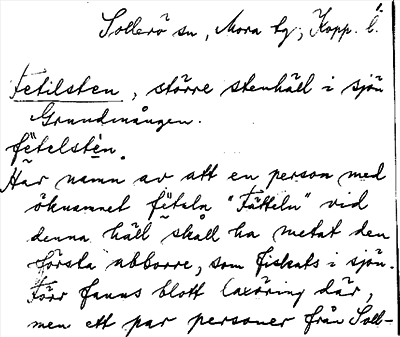 Sollerö sn, Mora tg, Kopp. l.
Fetilsten, större stenhäll i sjön
Grundmången.
fẹ̈telstẹn.
Har namn av att en person med
öknamnet fẹ̈teln "Fätteln" vid
denna häll skall ha metat den
första abborre, som fiskats i sjön.
Förr fanns blott laxöring där,
men ett par personer från Soll-